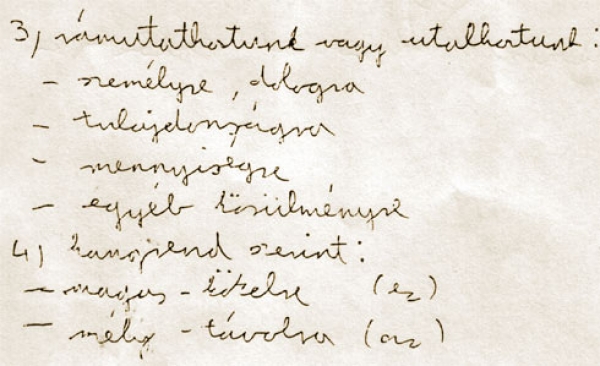 3, rámutathatunk vagy utalhatunk:
- személyre, dologra
- tulajdonságra
- mennyiségre
- egyéb körülményre
4, hangrend szerint:
- magas - közelre (ez)
- mély - távolra (az)